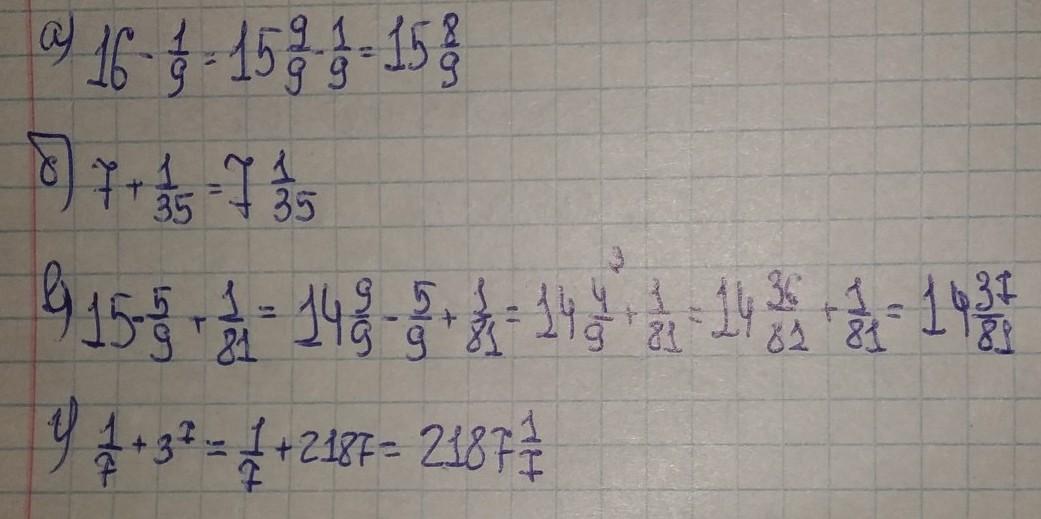 а) 16 - 1/9 = 15 9/9 - 1/9 = 15 8/9
б) 7 + 1/35 = 7 1/35
в) 15 - 5/9 + 1/81 = 14 9/9 - 5/9 + 1/81 = 14 4/9 + 1/81 = 14 36/81 + 1/81 = 14 37/81
г) 1/7 + 3^7 = 1/7 + 2187 = 2187 1/7